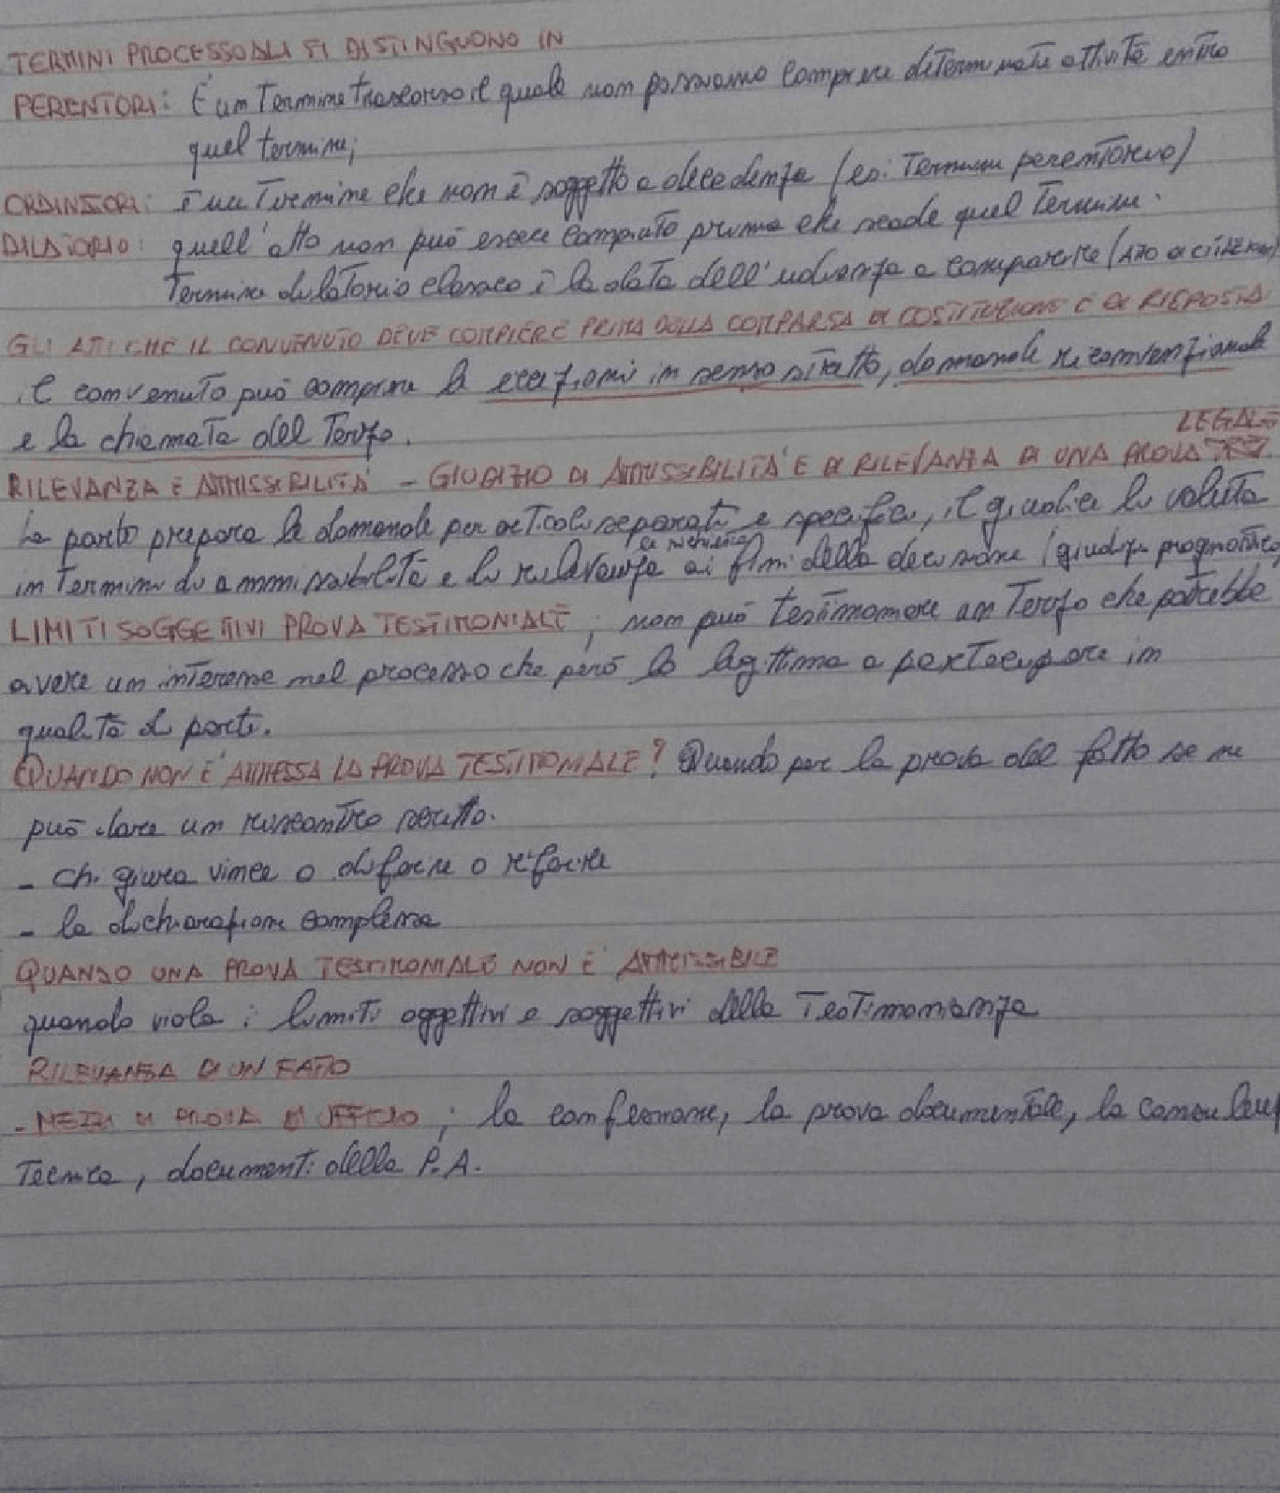 TERMINI PROCESSUALI SI DISTINGUONO IN
PERENTORI: È un Termine trascorso il quale non possiamo compiere determinate attività entro
quel termine;
ORDINATORI: è un Termine che non è soggetto a decadenza (es: Termine perentorio)
DILATORIO: quell'atto non può essere compiuto prima che scade quel Termine.
Termine dilatorio classico è la data dell'udienza a comparire (ATTO DI CITAZIONE)
GLI ATTI CHE IL CONVENUTO DEVE COMPIERE PRIMA DELLA COMPARSA DI COSTITUZIONE E DI RISPOSTA
il convenuto può compiere le eccezioni in senso stretto, domande riconvenzionale
e la chiamata del Terzo.
LEGALE
RILEVANZA E AMMISSIBILITÀ - GIUDIZIO DI AMMISSIBILITÀ E DI RILEVANZA DI UNA PROVA
La parte prepara le domande per articoli separati e specifici, il giudice le valuta
in Termini di ammissibilità e di rilevanza ai fini della decisione (giudizio prognostico
LIMITI SOGGETTIVI PROVA TESTIMONIALE; non può testimoniare un Terzo che potrebbe
avere un interesse nel processo che però lo legittima a partecipare in
qualità di parte.
QUANDO NON È AMMESSA LA PROVA TESTIMONIALE? Quando per la prova del fatto se ne
può dare un riscontro scritto.
- chi giura vince o diferire o riferire
- la dichiarazione complessa
QUANDO UNA PROVA TESTIMONIALE NON È AMMISSIBILE
quando viola i limiti oggettivi e soggettivi della Testimonianza
RILEVANZA DI UN FATTO
- MEZZI DI PROVA DI UFFICIO; la confessione, la prova documentale, la consulenz
Tecnica, documenti della P.A.